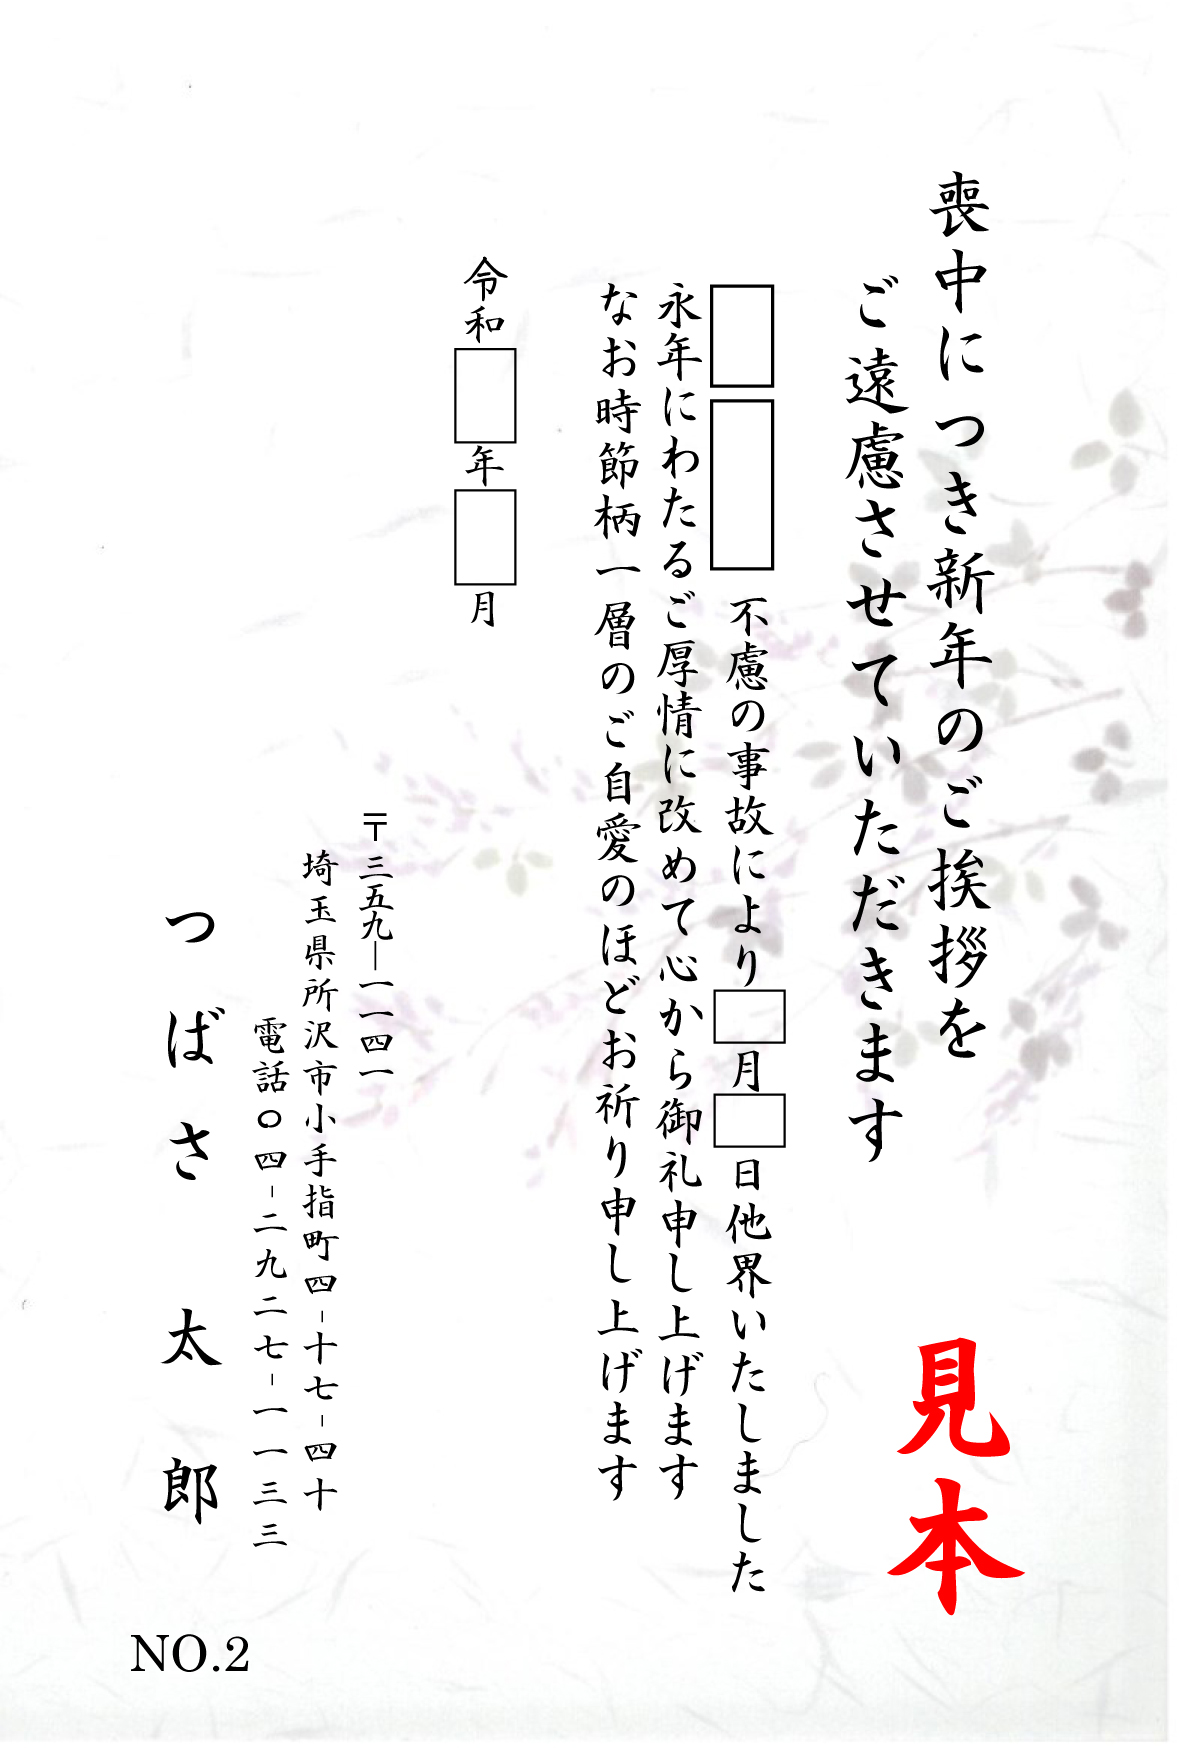 喪中につき新年のご挨拶を
ご遠慮させていただきます
不慮の事故により 月 日他界いたしました
永年にわたるご厚情に改めて心から御礼申し上げます
なお時節柄一層のご自愛のほどお祈り申し上げます
令和 年 月
〒三五九―一一四一
埼玉県所沢市小手指町四-十七-四十
電話〇四-二九二七-一一三三
つばさ 太郎
見本
NO.2